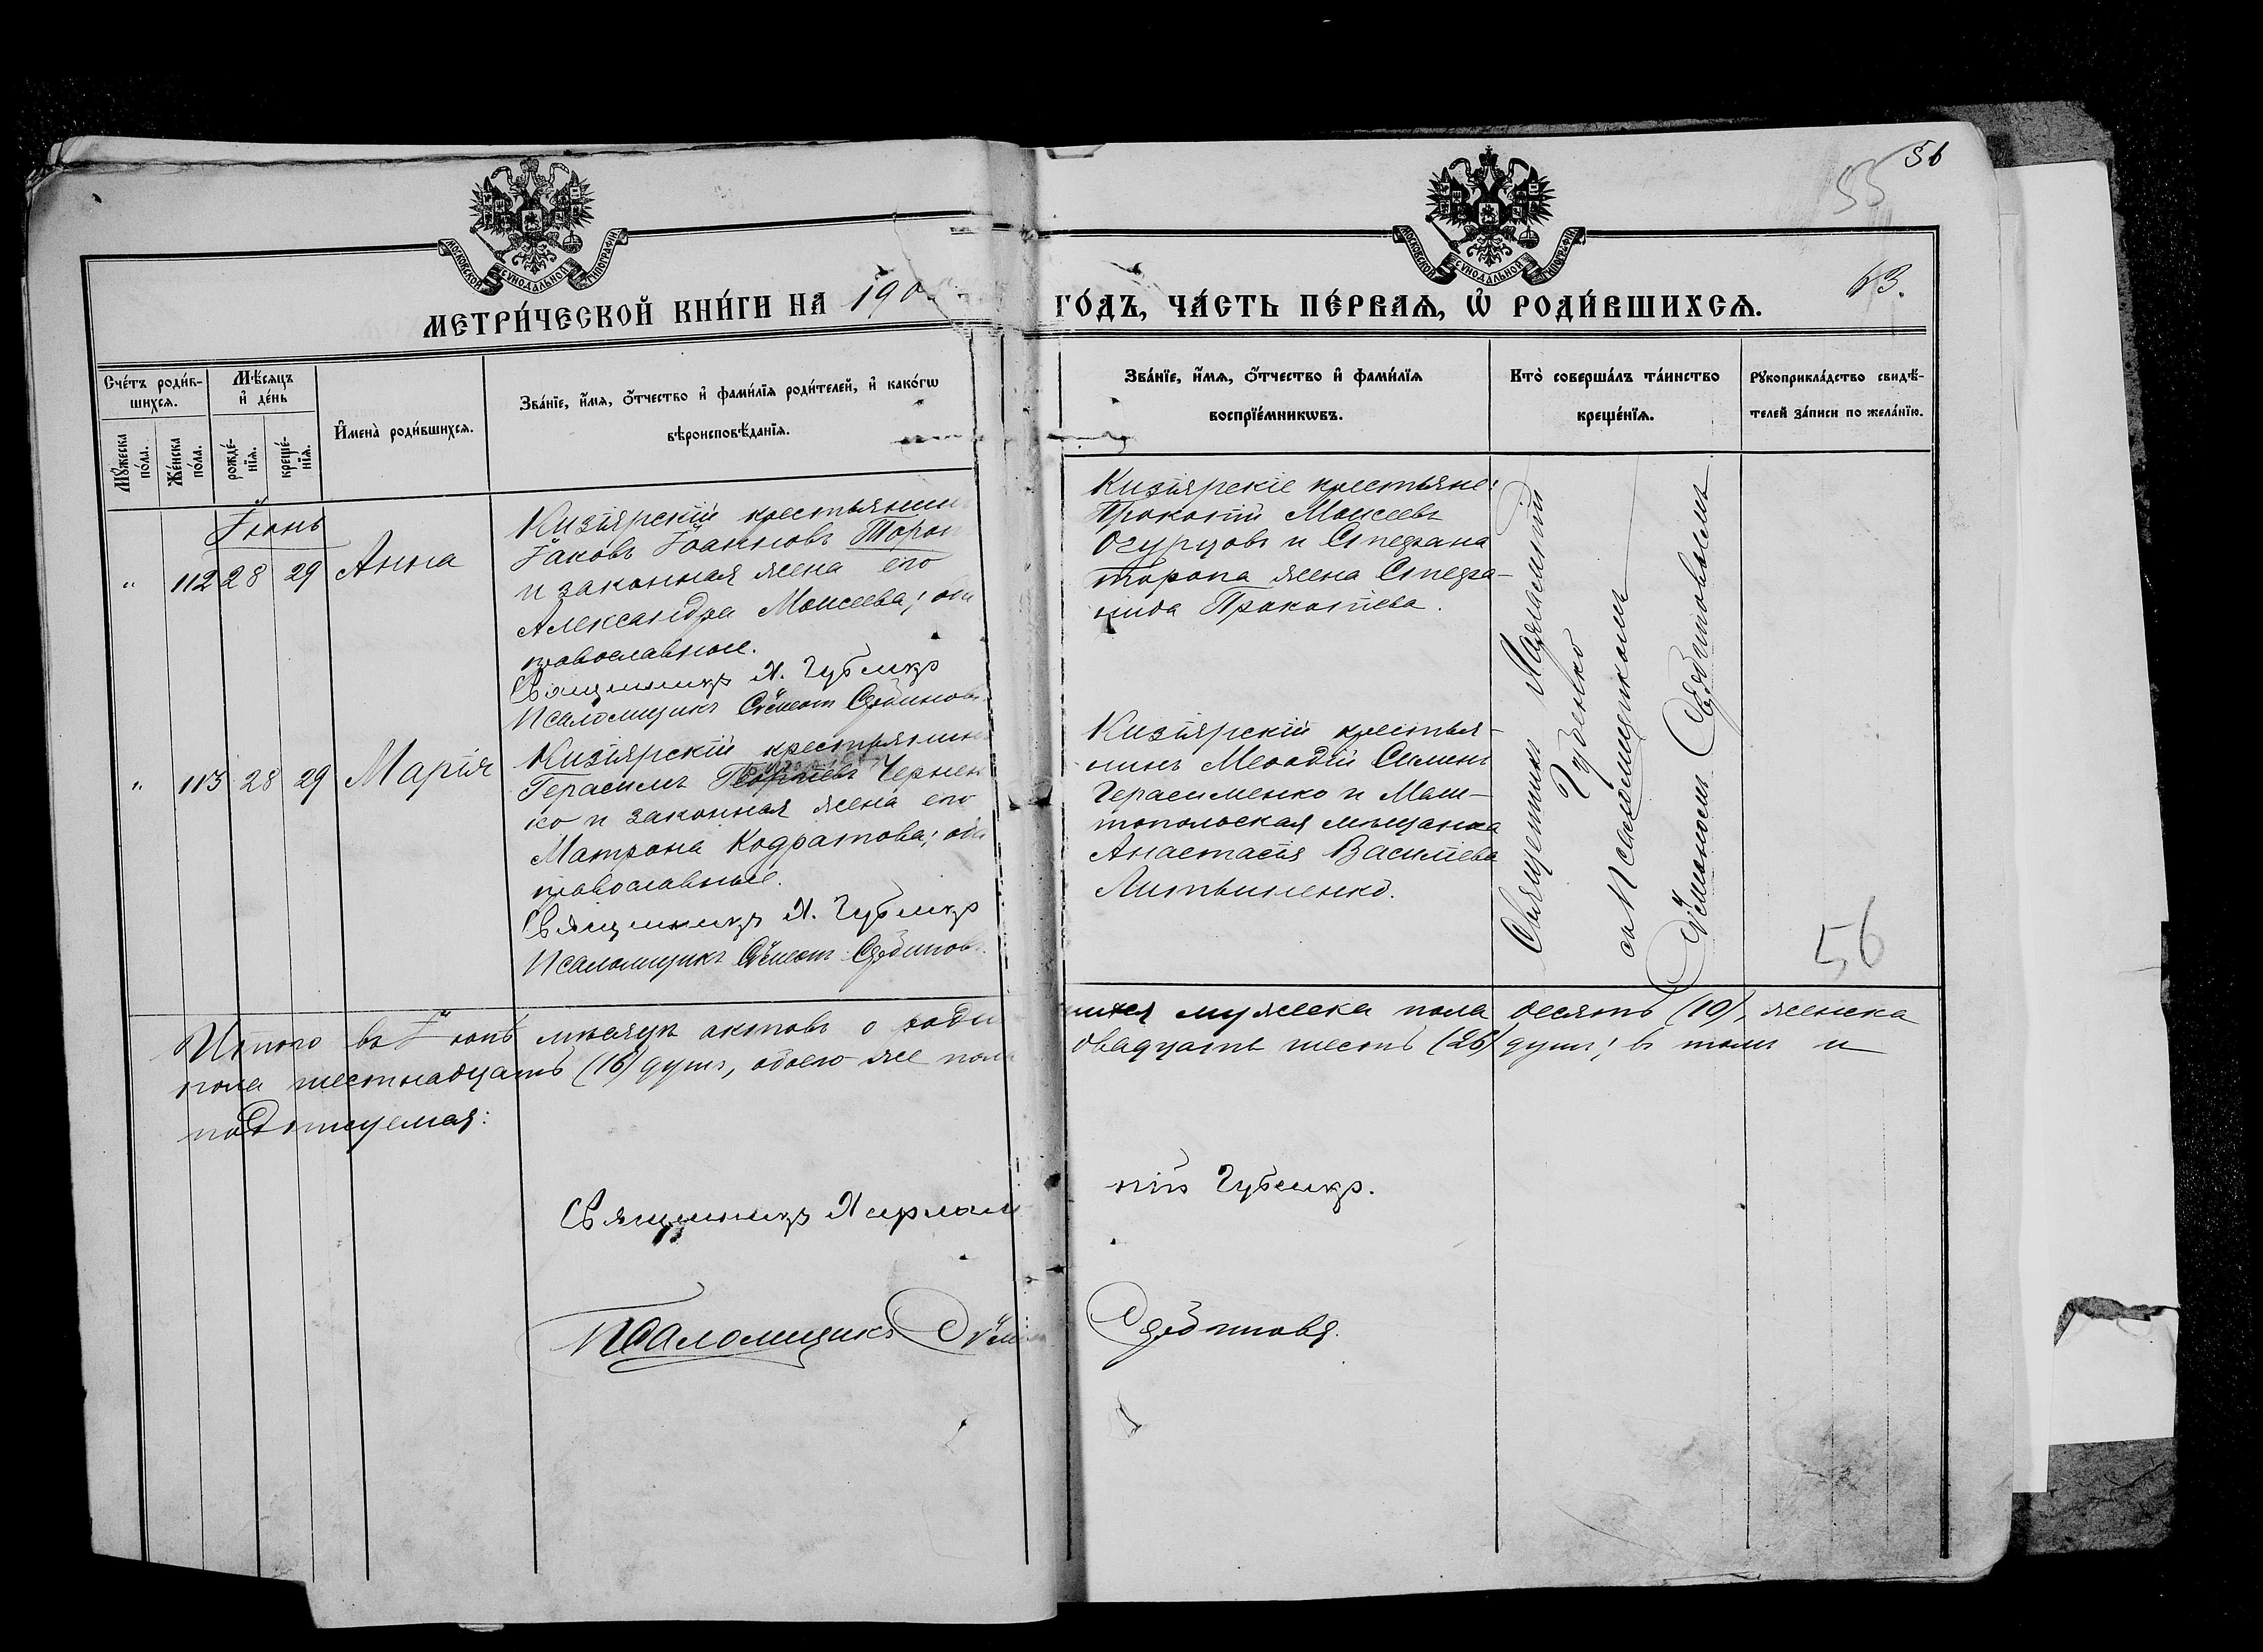 56
55
МОСКОВСКОЙ СѴНОДАЛЬНОЙ ТИПОГРАФІИ
МОСКОВСКОЙ СѴНОДАЛЬНОЙ ТИПОГРАФІИ
63.
МЕТРИ́ЧЕСКОЙ КНИ́ГИ НА 190
ГО́ДЪ, ЧА́СТЬ ПЕ́РВАѦ, Ѡ҆ РОДИ́ВШИХСѦ.
Сче́тъ роди́в-
шихсѧ.
Мꙋ́жеска
по́ла.
Же́нска
по́ла.
Мѣ́сѧцъ
и҆ де́нь
рожде́-
нїѧ.
креще́-
нїѧ.
И҆мена̀ роди́вшихсѧ.
Зва́нїе, и҆́мѧ, ѻ҆́тчество и҆ фами́лїѧ роди́телей, и҆ како́гѡ
вѣроисповѣ́данїѧ.
Зва́нїе, и҆́мѧ, ѻ҆́тчество и҆ фами́лїѧ
воспрїе́мникѡвъ.
Кто̀ соверша́лъ та́инство
креще́нїѧ.
Рꙋкоприкла́дство свидѣ́-
телей за́писи по жела́нїю.
Іюнь
" 112 28 29 Анна
Кизіярскій крестьянин
Іаковъ Іоанновъ Тороп
и законная жена его
Александра Моисеева; оба
православные.
Священникъ Х. Губенко
Псаломщикъ
Кизіярскіе крестьяне:
Прокопій Моисеевъ
Огурцовъ и Стефана
торопа жена Стефа-
нида Прокопіева.
" 113 28 29 Марія
Кизіярскій крестьянин
Герасимъ Георгіевъ Чернен
ко и законная жена его
Матрона Кодратова; оба
православные.
Священникъ Х. Губенко
Псаломщикъ
Кизіярскій крестья-
нинъ Меѳодій Симонъ
Герасименко и Мели-
топольская мѣщанка
Анастасія Василіева
Литвиненко.
Священникъ Харлампій
Губенко
съ Псаломщикомъ
56
Итого въ Іюнѣ мѣсяцѣ актовъ о роди
вшихся мужеска пола десять (10), женска
пола шестнадцать (16) душъ, обоего же пола
двадцать шесть (26) душъ; въ томъ и
подпишемся:
Священникъ Харлам
пій Губенко.
Псаломщикъ